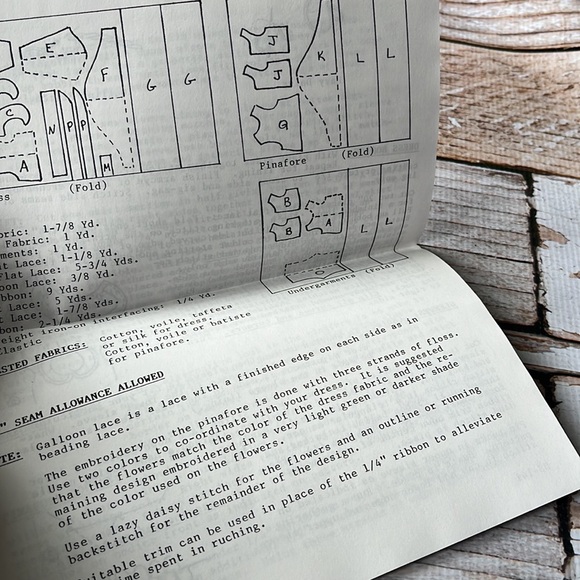 E
F
G
G
C
N
P
P
A
M
ss
(Fold)
J
J
K
L
L
Q
Pinafore (Fold)
B
B
A
L
L
Undergarments (Fold)
bric: 1-7/8 Yd.
Fabric: 1 Yd.
ments: 1 Yd.
t Lace: 1-1/8 Yd.
Flat Lace: 5-3/4 Yds.
oon Lace: 3/8 Yd.
bbon: 9 Yds.
Lace: 5 Yds.
Lace: 1-7/8 Yds.
bon: 2-1/4 Yds.
eight iron-on interfacing: 1/4 Yd.
Elastic
STED FABRICS: Cotton, voile, taffeta
or silk for dress.
Cotton, voile or batiste
for pinafore.
" SEAM ALLOWANCE ALLOWED
TE: Galloon lace is a lace with a finished edge on each side as in
beading lace.
The embroidery on the pinafore is done with three strands of floss.
Use two colors to co-ordinate with your dress. It is suggested
that the flowers match the color of the dress fabric and the re-
maining design embroidered in a very light green or darker shade
of the color used on the flowers.
Use a lazy daisy stitch for the flowers and an outline or running
backstitch for the remainder of the design.
uitable trim can be used in place of the 1/4" ribbon to alleviate
ime spent in ruching.